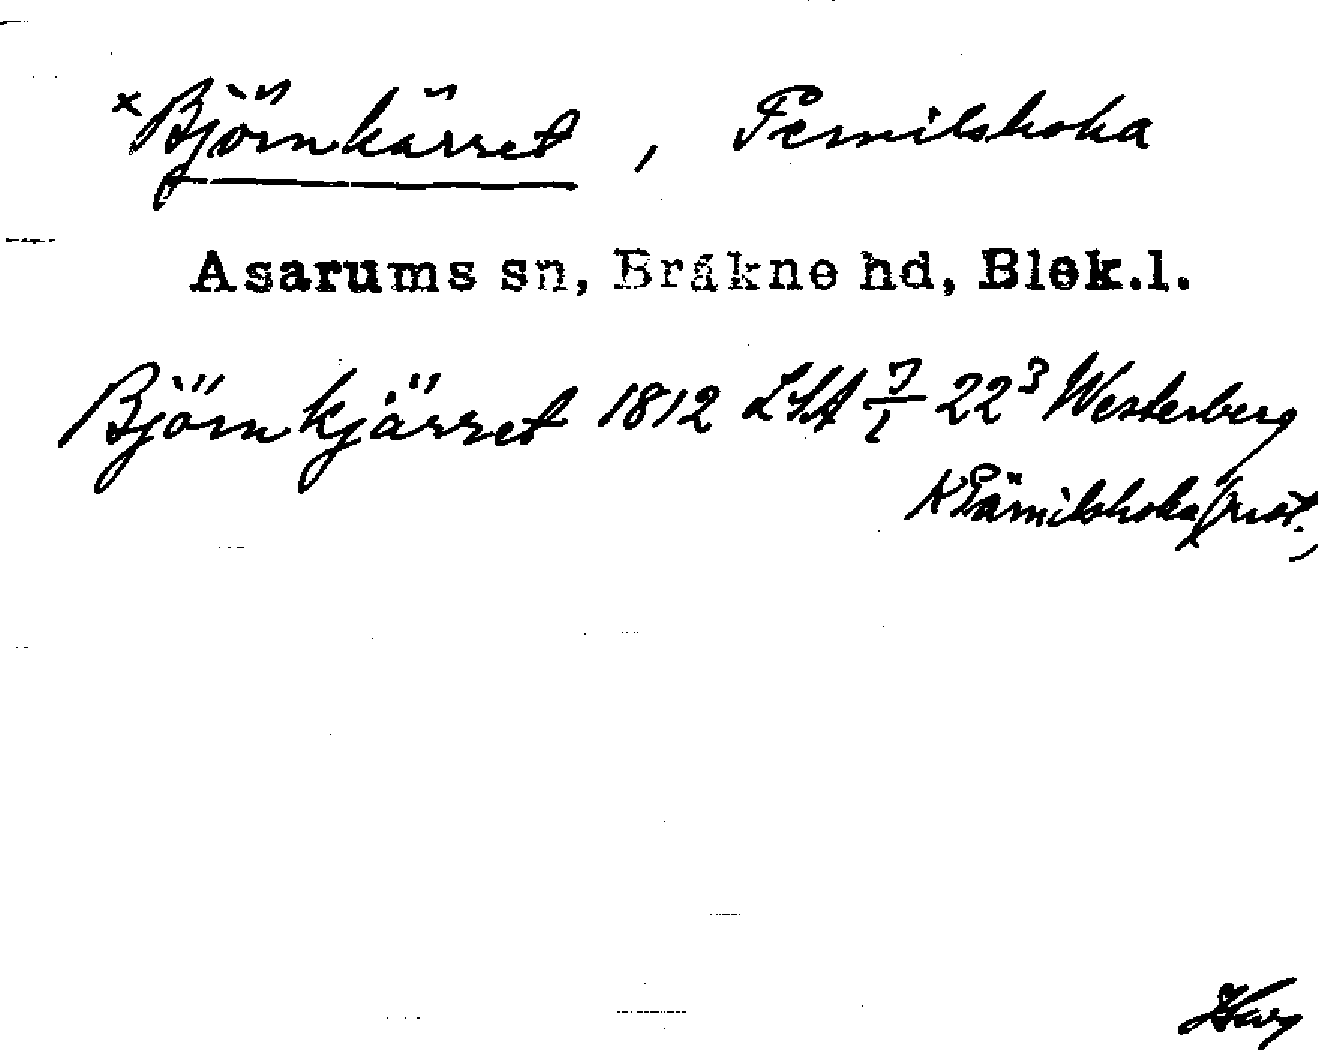 × Björnkärret, Pemilskoka
Asarums sn, Bräkne hd, Blek.l.
Björnkjärret 1812 LSA 22³ Westerberg
Pämilskoka